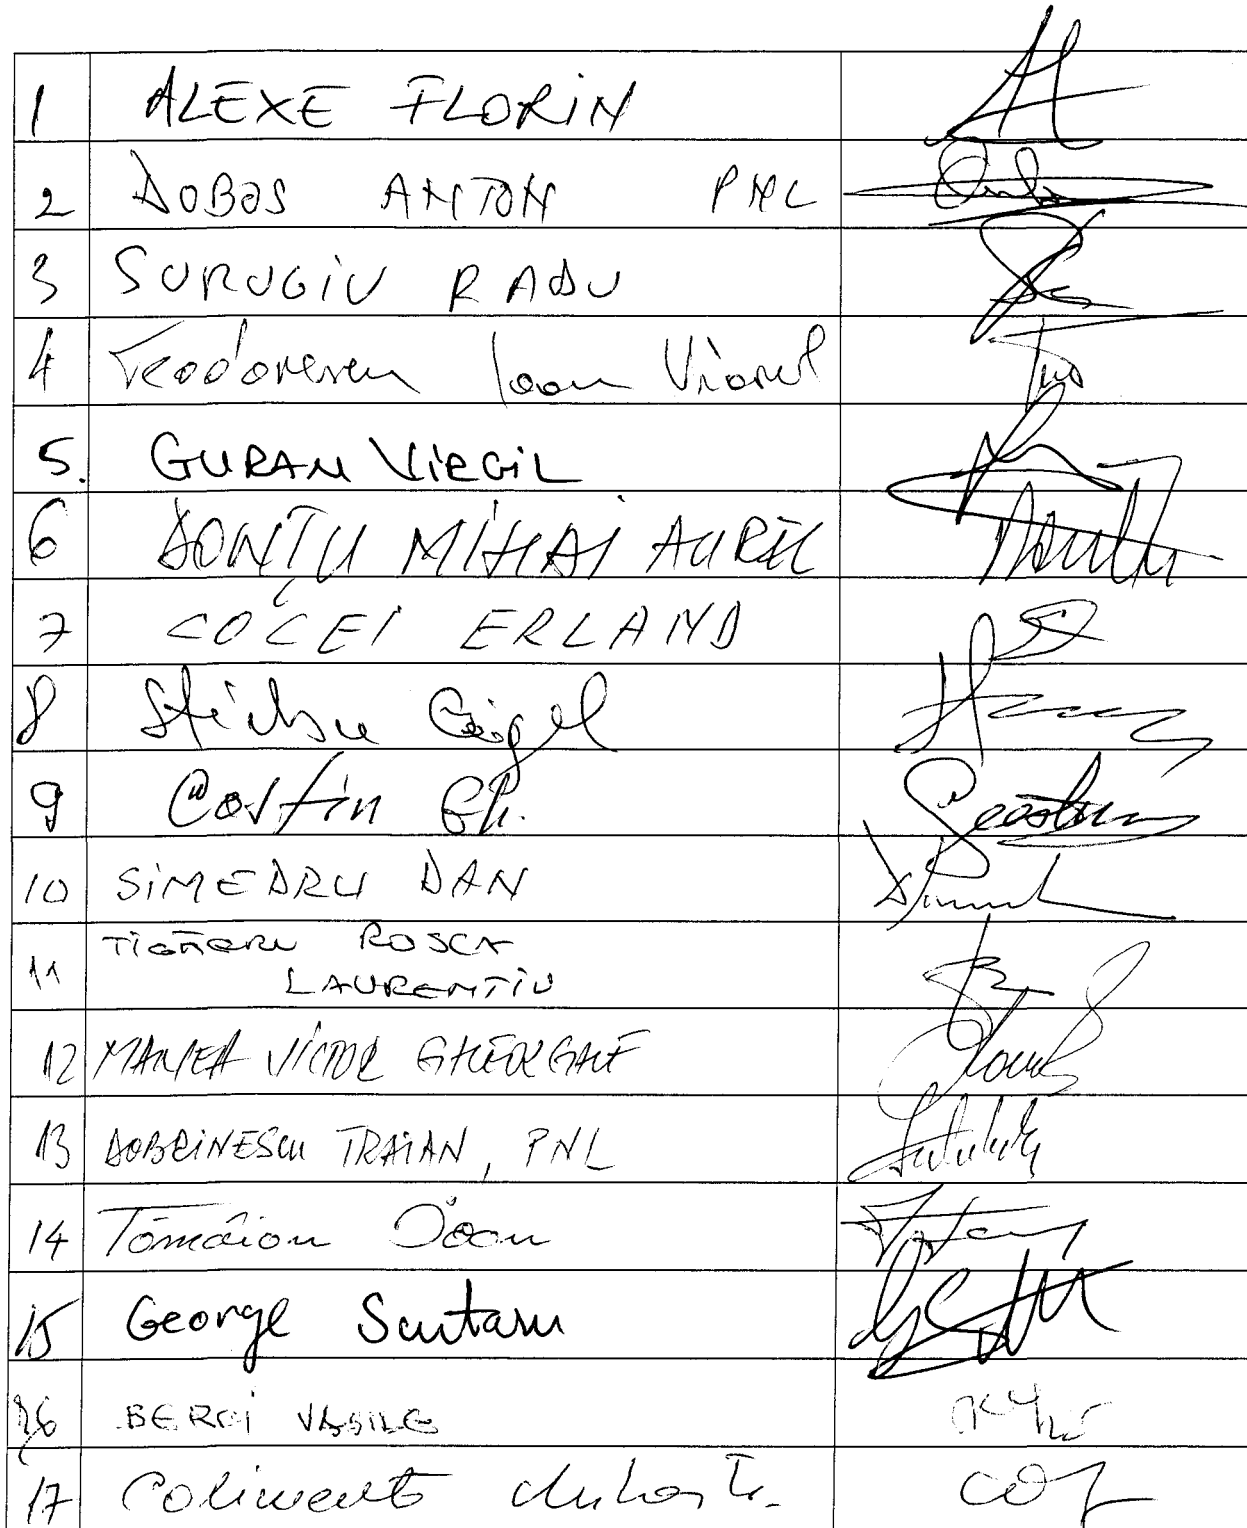 1 ALEXE FLORIN
2 DOBOS ANTON PNL
3 SURUGIU RADU
4 Teodorescu Ioan Viorel
5. GURAN VIRGIL
6 DONȚU MIHAI AUREL
7 COCEI ERLAND
8 Știrbu Gigel
9 Costin Gh.
10 SIMEDRU DAN
11 ROSCA
LAURENTIU
12 MANEA VICTOR GHEORGHE
13 DOBRINESCU TRAIAN, PNL
14 Tămâian Ioan
15 George Scutaru
16 BERCI VASILE
17